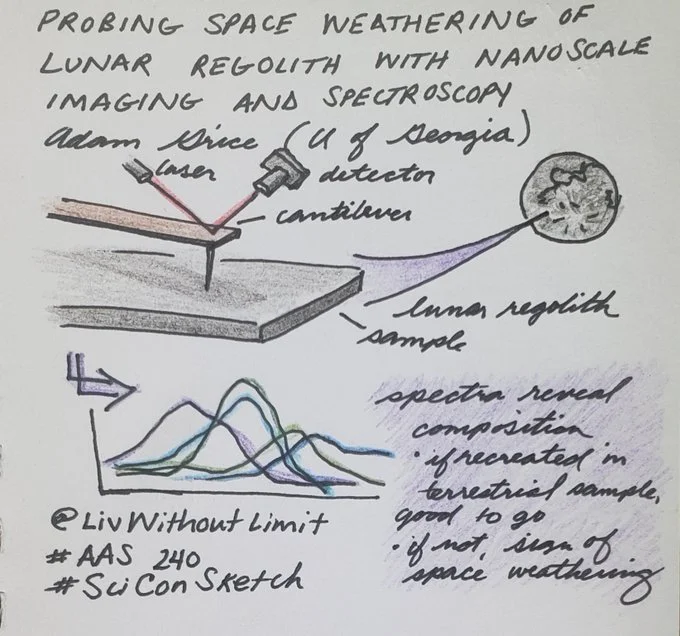 PROBING SPACE WEATHERING OF
LUNAR REGOLITH WITH NANOSCALE
IMAGING AND SPECTROSCOPY
Adam Grice (U of Georgia)
laser
detector
cantilever
lunar regolith
sample
spectra reveal
composition
• if recreated in
terrestrial sample,
good to go
• if not, sign of
space weathering
@LivWithoutLimit
# AAS 240
# SciConSketch